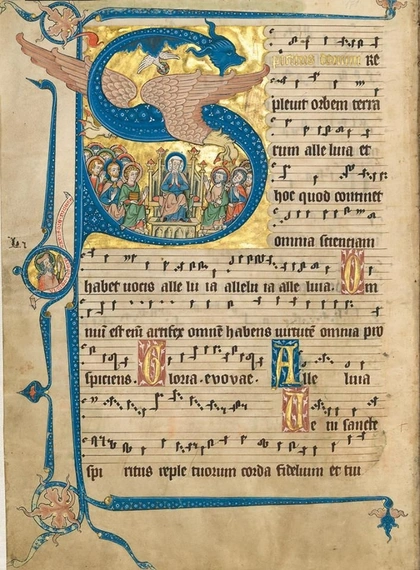 Spiritus domini RE
pleuit orbem terra
rum alle luia et
hoc quod continet
omnia scienciam
habet uocis alle lu ia allelu ia alle luia. Om
niū est eniɱ artifex omnē habens uirtutē omnia pro
spiciens. Gloria. evovae. Alle luia
Ve ni sancte
spi ritus reple tuorum corda fidelium et tui